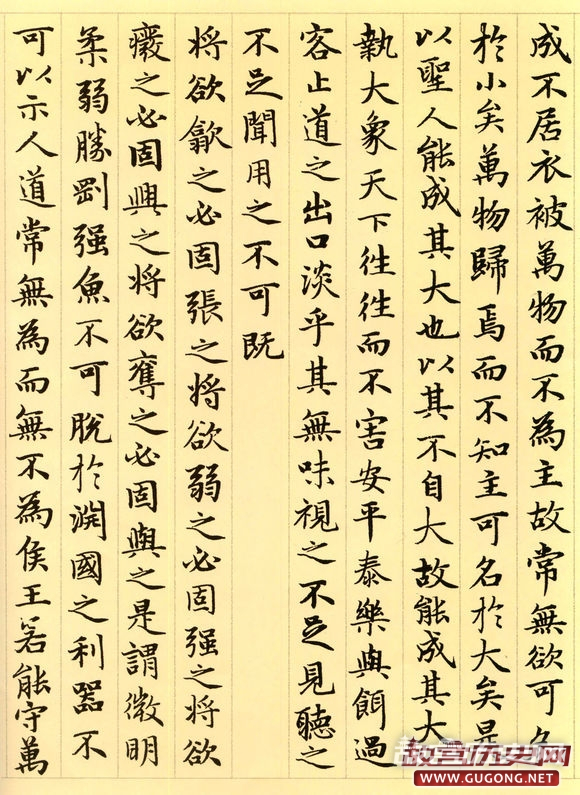 成不居衣被萬物而不為主故常無欲可名
於小矣萬物歸焉而不知主可名於大矣是
以聖人能成其大也以其不自大故能成其大
執大象天下徃徃而不害安平泰樂與餌過
客止道之出口淡乎其無味視之不足見聽之
不足聞用之不可既
将欲歙之必固張之将欲弱之必固强之将欲
癈之必固興之将欲奪之必固與之是謂微明
柔弱勝剛强魚不可脫於淵國之利器不
可以示人道常無為而無不為侯王若能守萬
故宫历史网
WWW.GUGONG.NET